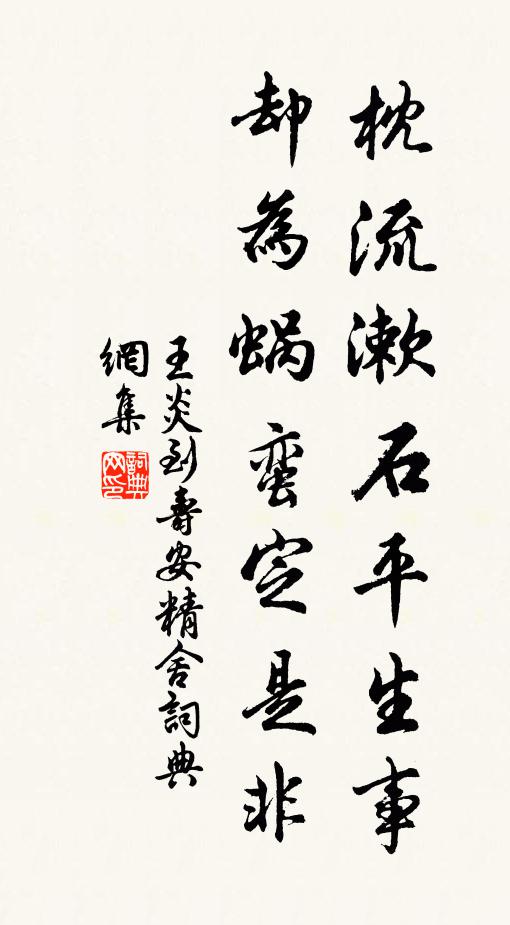 枕流漱石平生事
却為蝸蛮定是非
王炎到壽安精舍詞典
網集
詞典網印